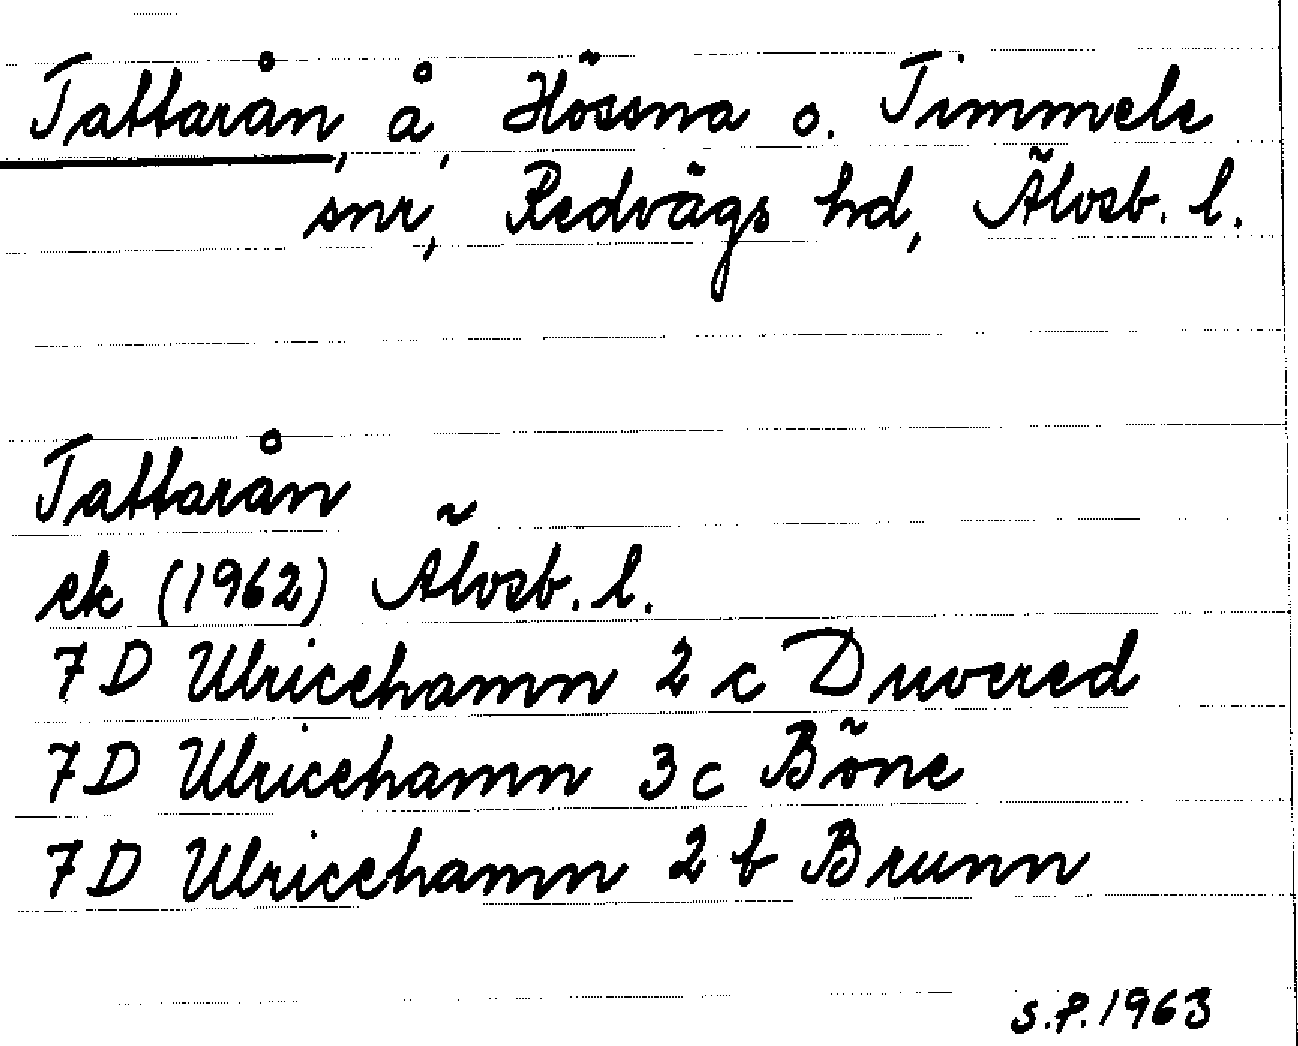 Tattarån, å, Hössna o. Timmele
snr, Redvägs hd, Älvsb. l.
Tattarån
ek (1962) Älvsb. l.
7 D Ulricehamn 2 c Duvered
7 D Ulricehamn 3 c Böne
7 D Ulricehamn 2 b Brunn
S.P. 1963